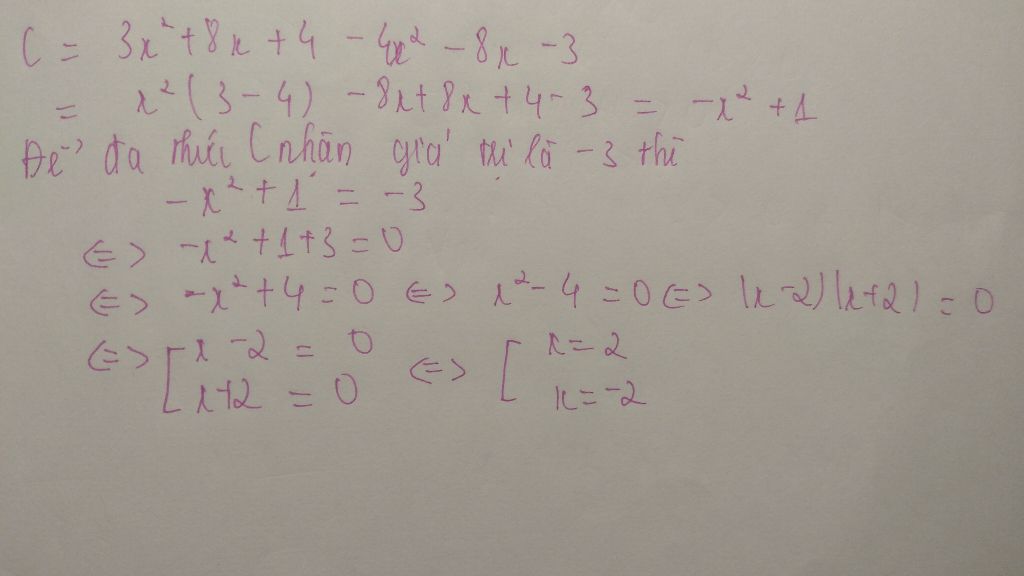 C = 3x² + 8x + 4 - 4x² - 8x - 3
= x² (3 - 4) - 8x + 8x + 4 - 3 = -x² + 1
Để đa thức C nhận giá trị là -3 thì
-x² + 1 = -3
<=> -x² + 1 + 3 = 0
<=> -x² + 4 = 0 <=> x² - 4 = 0 <=> (x - 2)(x + 2) = 0
<=> [ x - 2 = 0 <=> [ x = 2
x + 2 = 0 x = -2